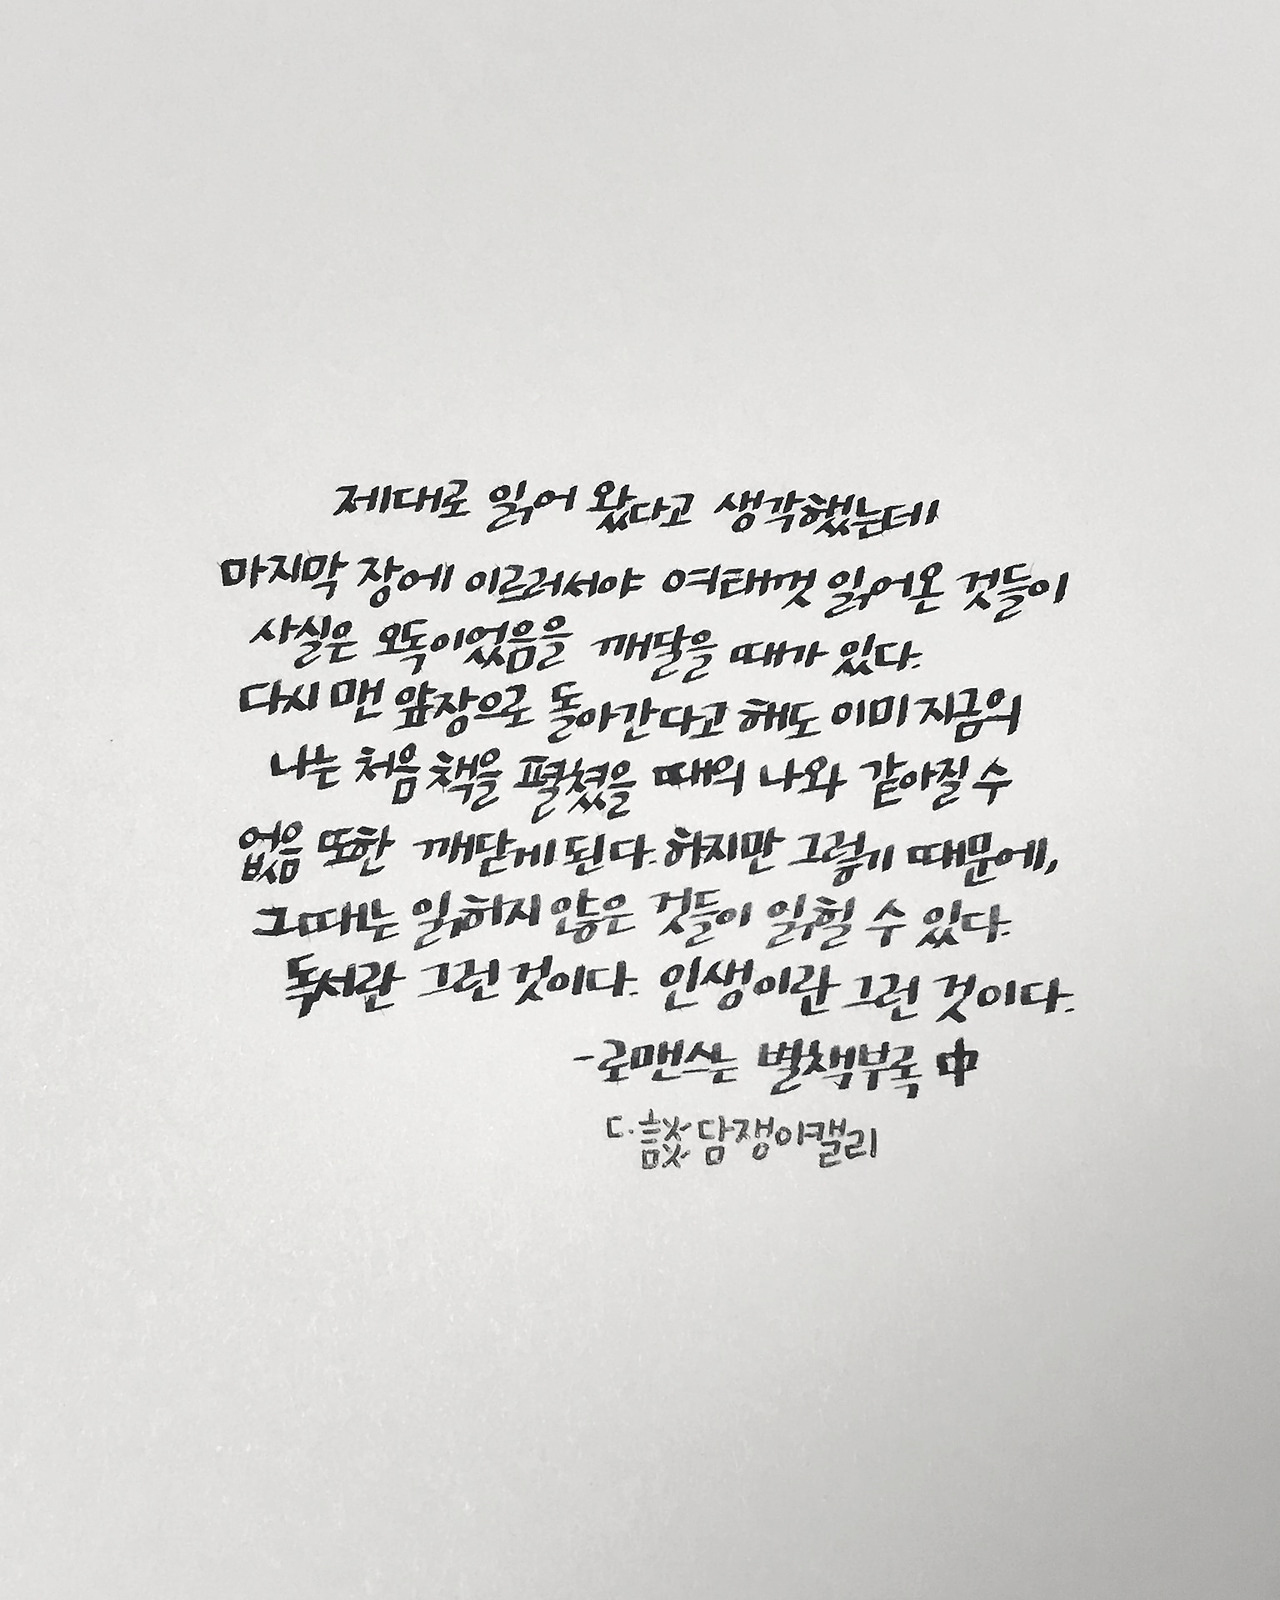 제대로 읽어 왔다고 생각했는데
마지막 장에 이르러서야 여태껏 읽어온 것들이
사실은 오독이었음을 깨달을 때가 있다.
다시 맨 앞장으로 돌아간다고 해도 이미 지금의
나는 처음 책을 펼쳤을 때의 나와 같아질 수
없음 또한 깨닫게 된다. 하지만 그렇기 때문에,
그때는 읽히지 않은 것들이 읽힐 수 있다.
독서란 그런 것이다. 인생이란 그런 것이다.
-로맨스는 별책부록 中
ㄷ.談 담쟁이캘리